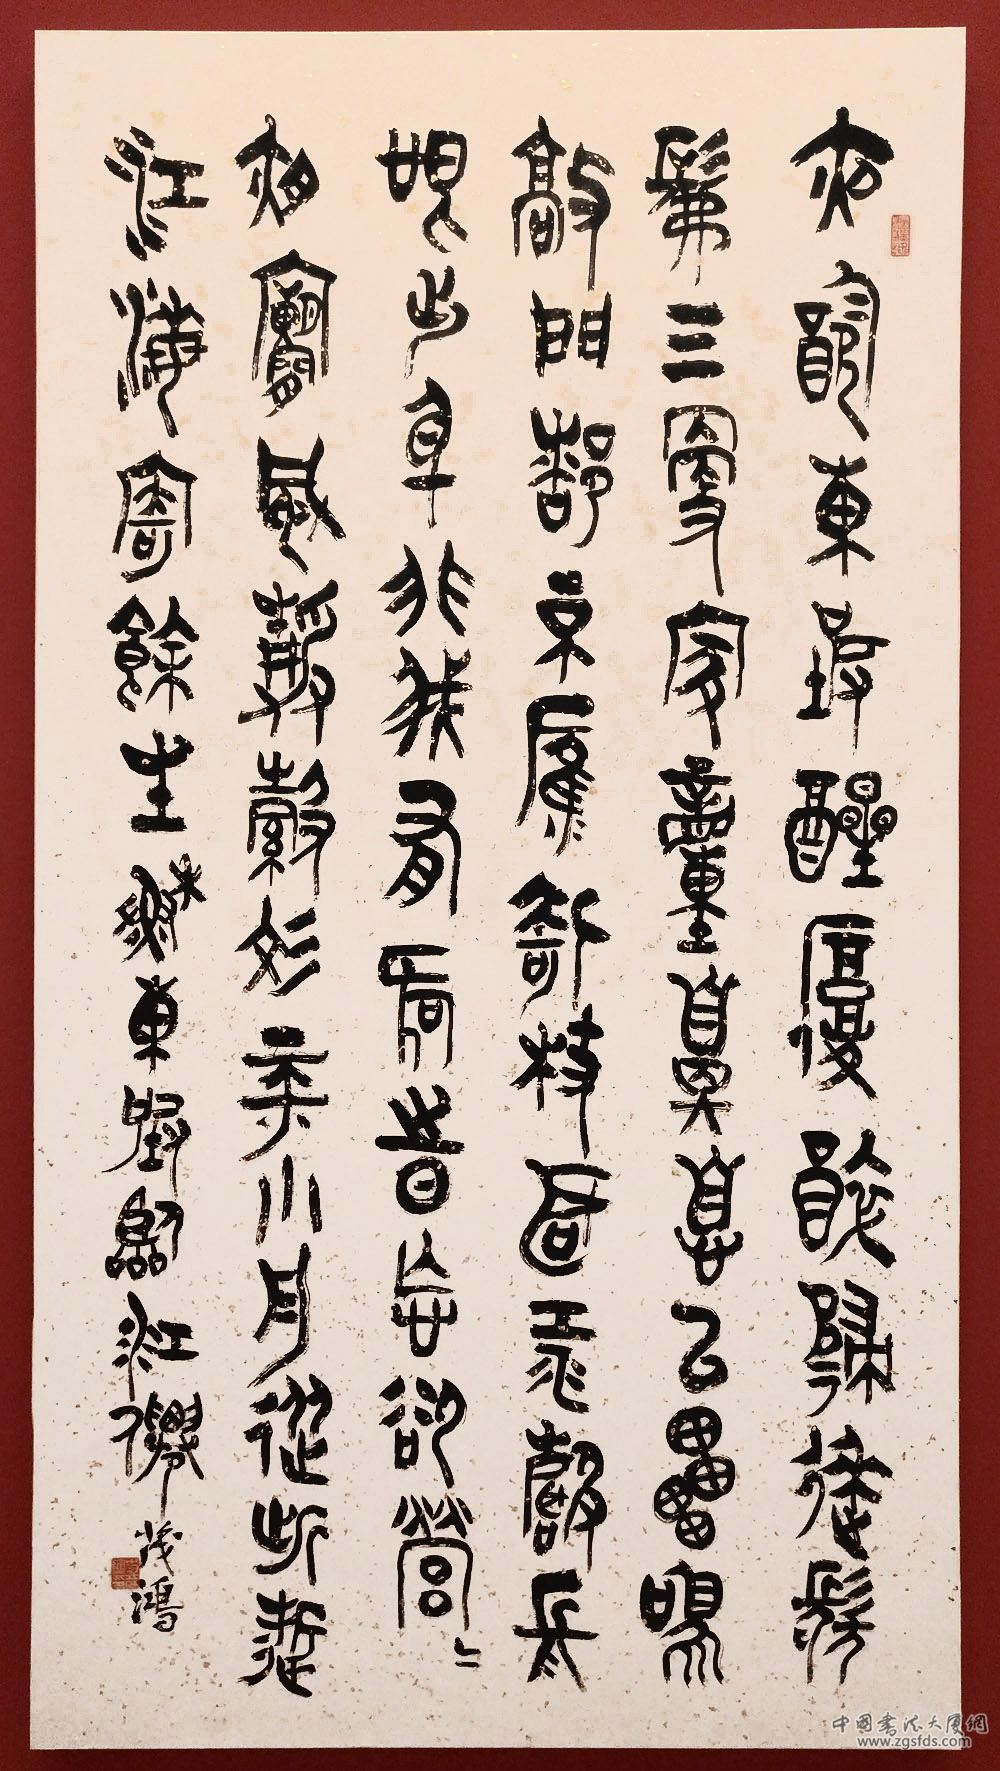 夜飲東坡醒復醉歸來髣
髴三更家童鼻息已雷鳴
敲門都不應倚杖聽江聲長
恨此身非我有何時忘卻營〻
夜闌風靜縠紋平小舟從此逝
江海寄餘生蘇東坡臨江僊茂鴻
中国书法大厦網
www.zgsfds.com